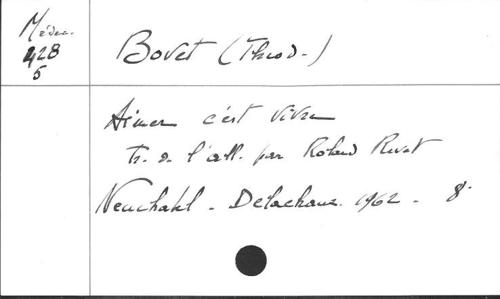 Médec.
428
5
Bovet (Theod.)
Aimer c'est vivre
tr. de l'all. par Roland Revet
Neuchatel - Delachaux 1962 - 8°